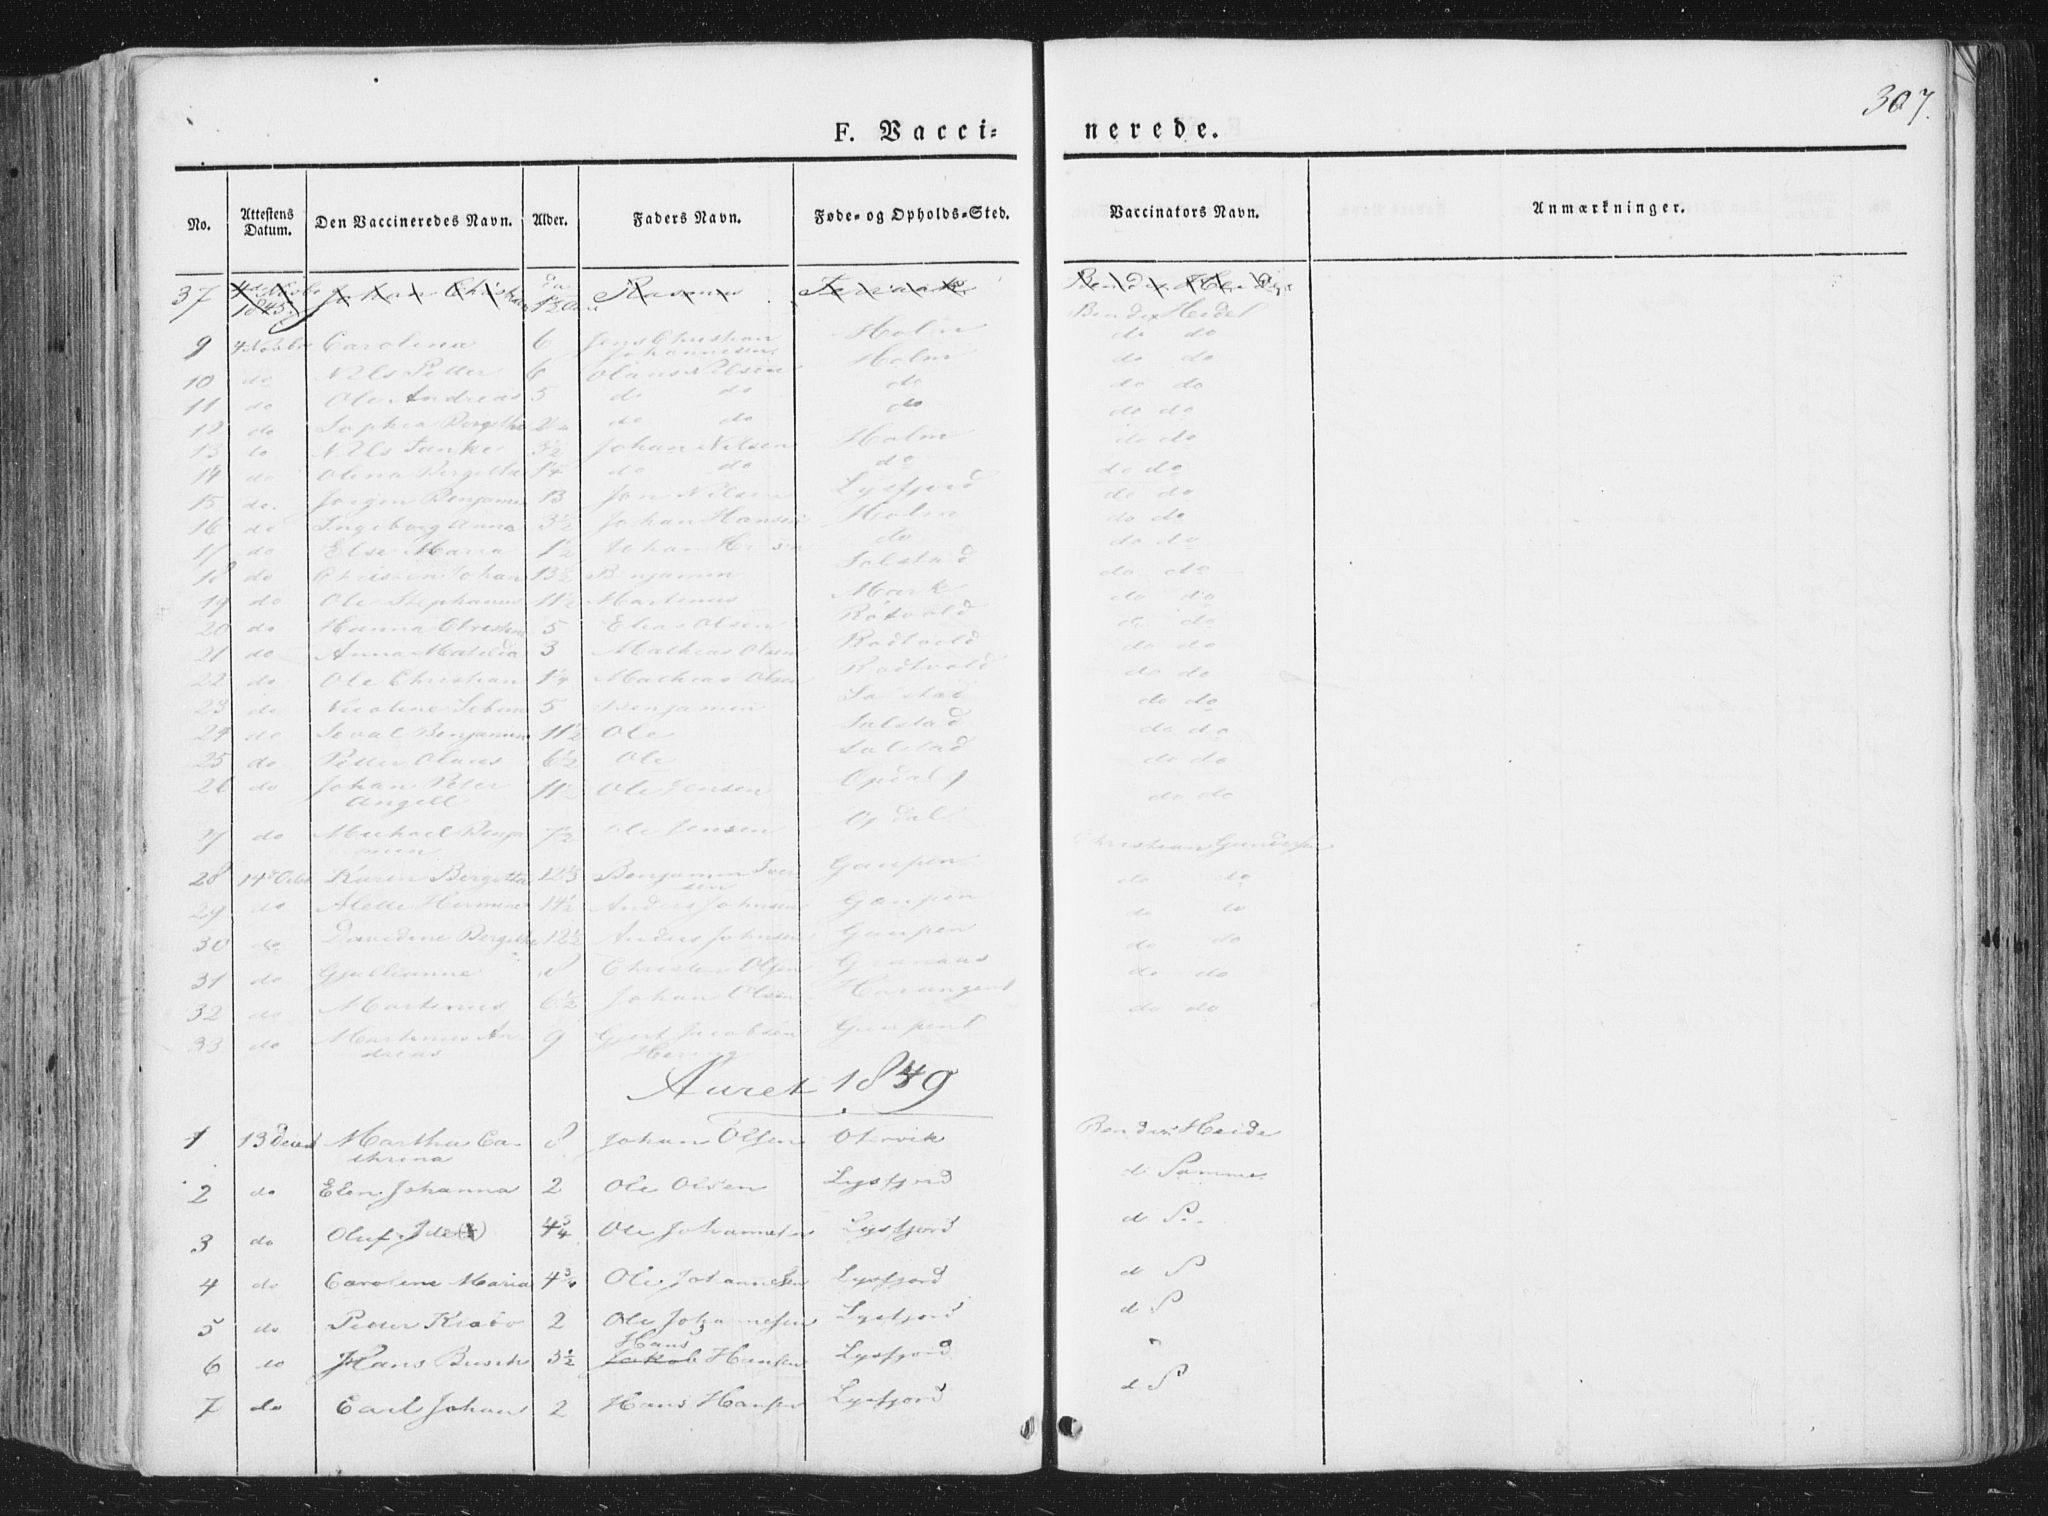 307.
F. Vacci= nerede.
No. Attestens Datum. Den Vaccineredes Navn. Alder. Faders Navn. Føde- og Opholds-Sted. Vaccinators Navn. Anmærkninger.
37 1845 Johan Christian 1½ Rasmus
Bendix Heidel
9 4 Novbr Carolina 6 Jens Christian Johannesen Holm do do
10 do Nils Petter 6 Olaus Nilsen Holm do do
11 do Ole Andreas 5 do do do do do
12 do Sophia Bergithe do do do do do
13 do Nils Tanke 3½ Johan Nilsen Holm do do
14 do Olina Bergitha 1¼ do do do do do
15 do Jørgen Benjamin 13 Jon Nilsen Lysfjord do do
16 do Ingeborg Anna 3½ Johan Hansen Holm do do
17 do Else Maria 1½ Johan do do do
18 do Christen Johan 13½ Benjamin Salstad do do
19 do Ole Stephanus 11½ Martinus Mark do do
20 do Hanna 5 Elias Olsen Røtvold do do
21 do Anna Matilda 3 Mathias Olsen Rodtvold do do
22 do Ole Christian 1¼ Mathias Olsen Rodtvold do do
23 do Nicoline 5 Benjamin Salstad do do
24 do Benjamin 11½ Ole Salstad do do
25 do Petter Olaus 6½ Ole Salstad do do
26 do Johan Peter Angell 11½ Ole Jensen Opdal do do
27 do Michael Benjamin 7½ Ole Jensen Opdal Christian
28 14 Octbr Karen Bergitta Benjamin Iversen Gaupen do do
29 do Mette Hermine 14½ Anders Johnsen Gaupen do do
30 do Davidine Bergithe 12½ Anders Johnsen Gaupen do do
31 do Gjullianne 8 Christen Olsen do do
32 do Martinus 6½ Johan Olsen do do
33 do Martinus Andreas 9 Gjert Jacobsen
Aaret 1849
1 13 Martha Cathrina 8 Johan Olsen Otervik Bendix Heide
2 do Elen Johanna 2 Ole Olsen Lysfjord d Samme
3 do Oluf 4¾ Ole Johannesen Lysfjord d S.
4 do Caroline Maria 4¾ Ole Johannesen Lysfjord d S
5 do Petter Kiabo 2 Ole Johannesen Lysfjord d S
6 do Hans Busch 3½ Hans Jakob Hansen Lysfjord "
7 do Carl Johan 2 Hans Hansen Lysfjord d S